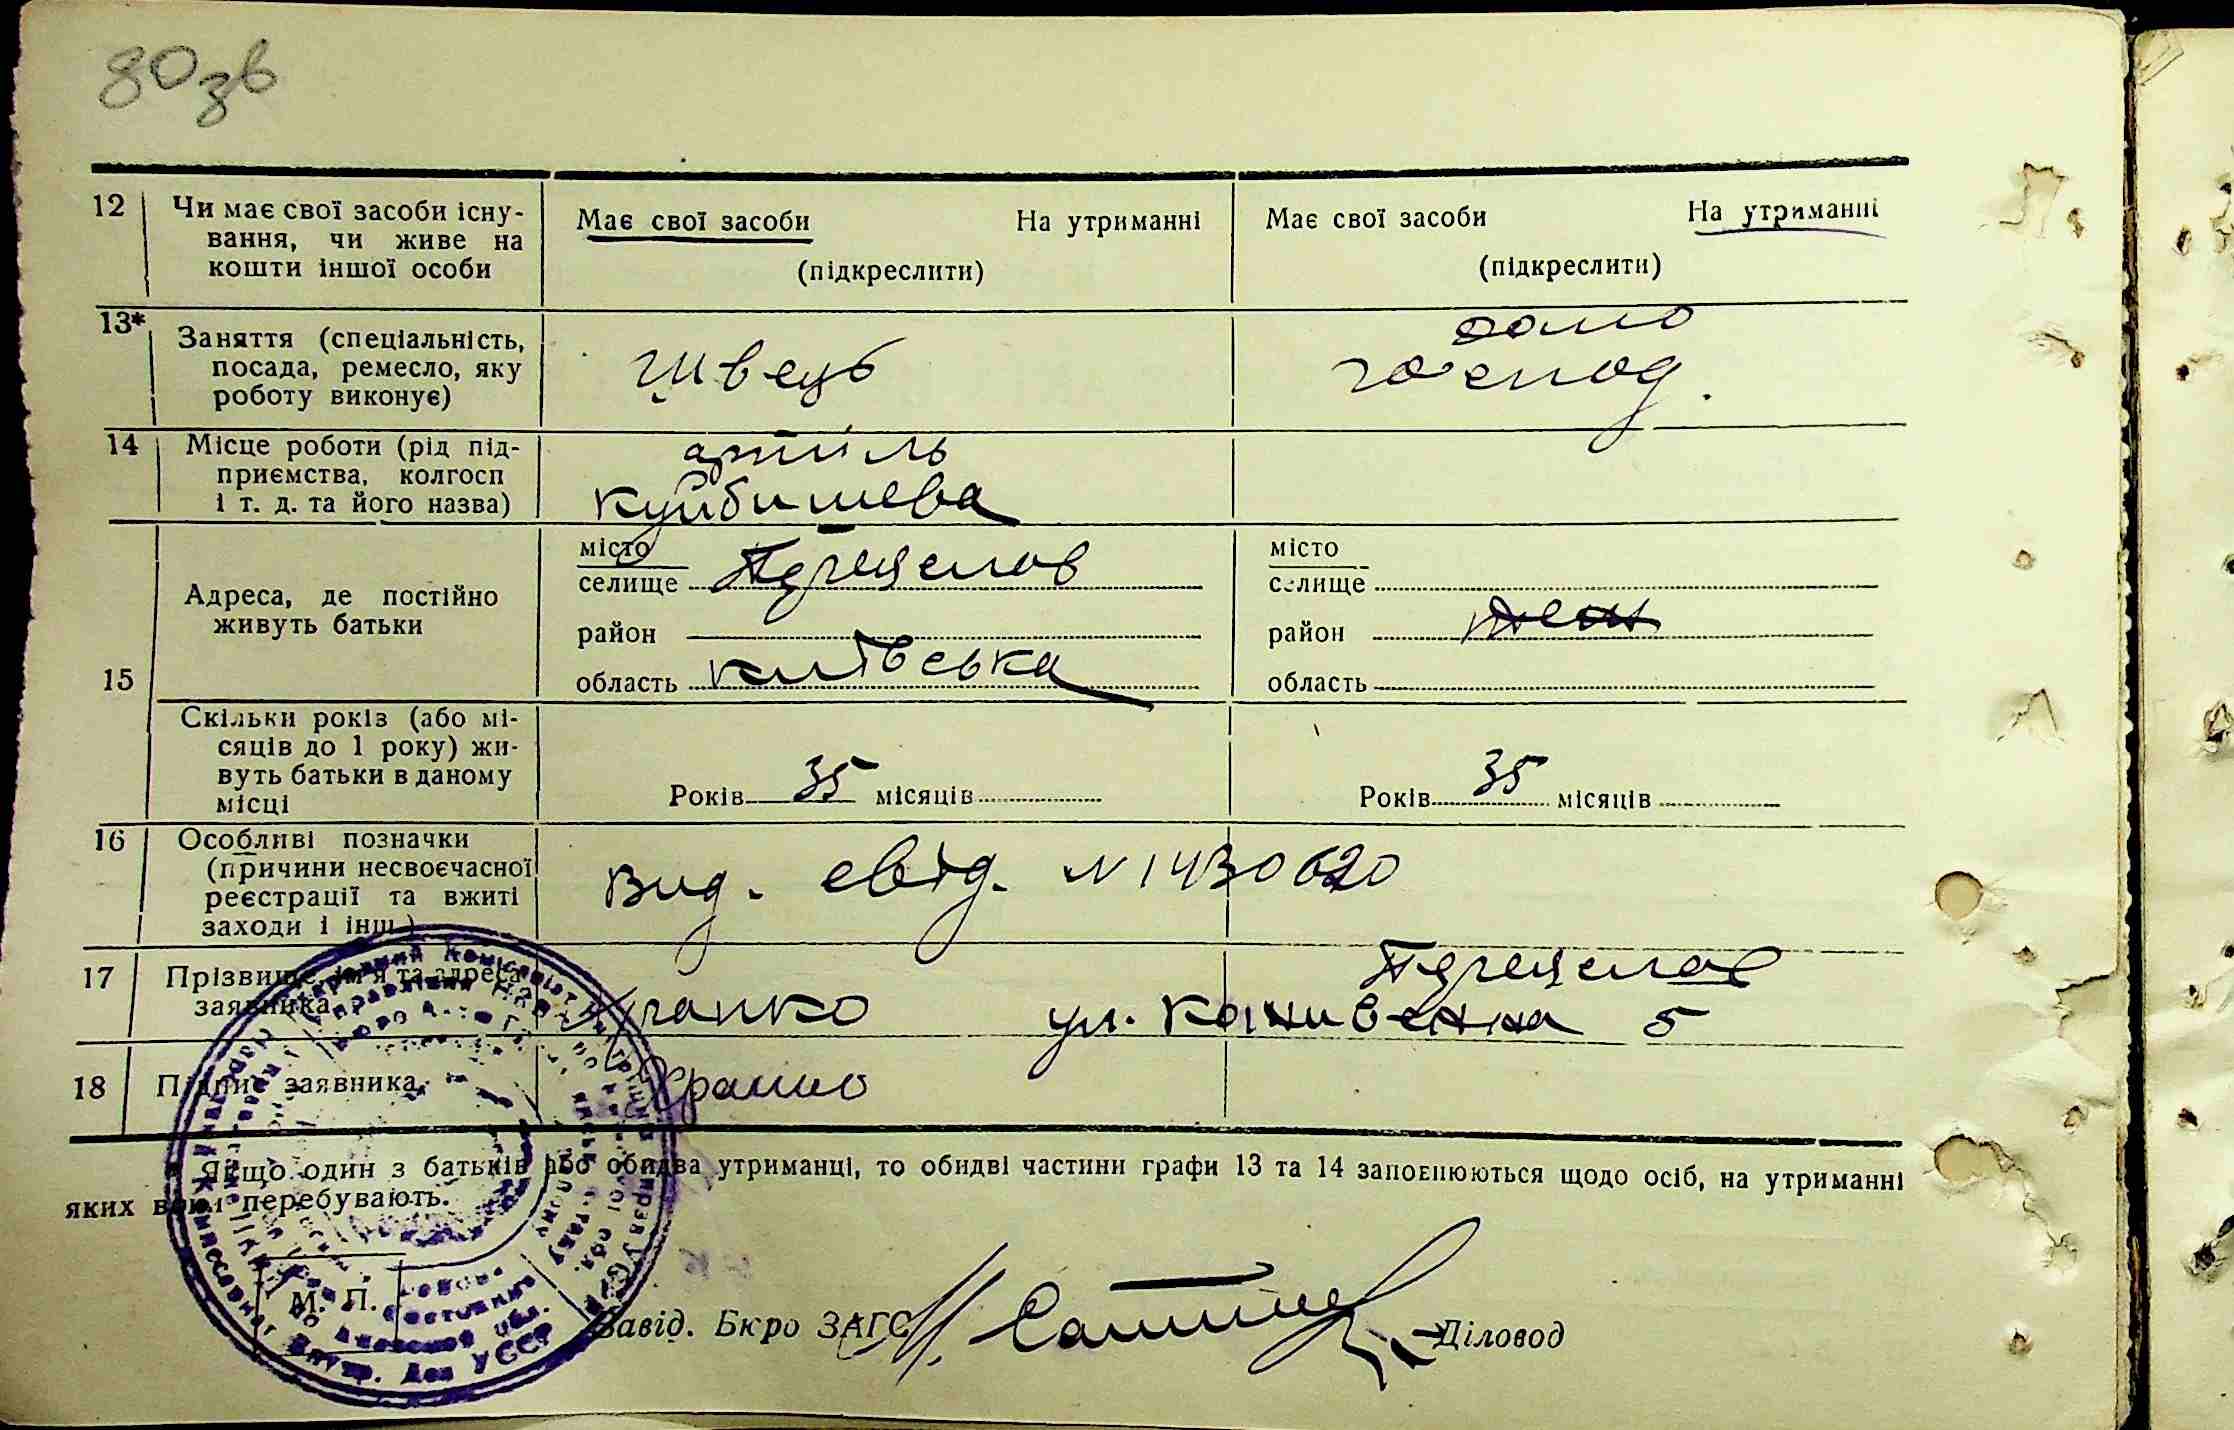 80 зв
12 Чи має свої засоби існу- Має свої засоби На утриманні Має свої засоби На утриманні
вання, чи живе на
кошти іншої особи (підкреслити) (підкреслити)
13* Заняття (спеціальність, домо
посада, ремесло, яку Швець господ.
роботу виконує)
14 Місце роботи (рід під- артіль
приємства, колгосп
і т. д. та його назва) Куйбишева
місто місто
селище селище
Адреса, де постійно
живуть батьки район район
15 область київська область
Скільки років (або мі-
сяців до 1 року) жи-
вуть батьки в даному
місці Років 35 місяців Років 35 місяців
16 Особливі позначки
(причини несвоєчасної
реєстрації та вжиті Вид. свід. N 1430620
заходи і інш.)
17 Прізвище, ім'я та адреса
заявника ул. 5
18 Підпис заявника
* Якщо один з батьків або обидва утриманці, то обидві частини графи 13 та 14 заповнюються щодо осіб, на утриманні
яких вони перебувають.
М. П.
Завід. Бюро ЗАГС Діловод
Внутр. Дел УССР